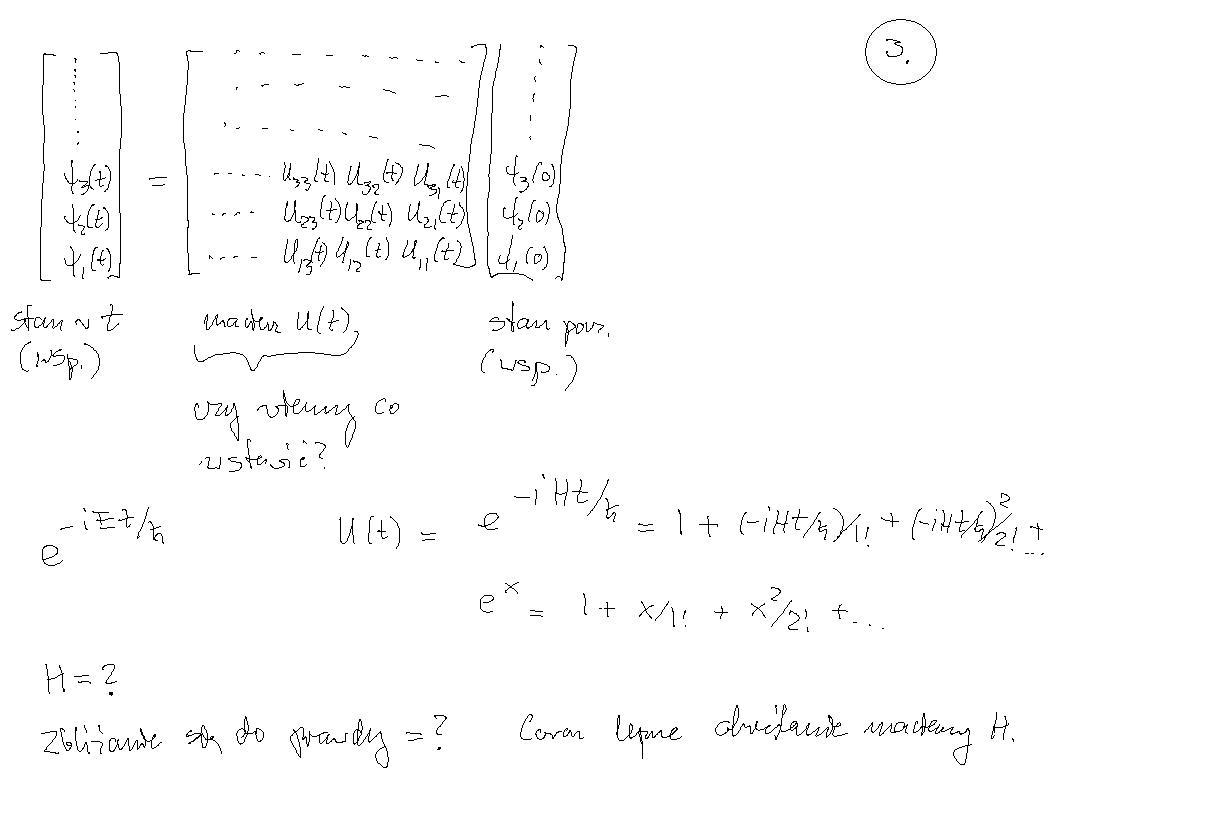 3.
[⋮ ψ₃(t) ψ₂(t) ψ₁(t)] = [..... U₃₃(t) U₃₂(t) U₃₁(t) .... U₂₃(t) U₂₂(t) U₂₁(t) .... U₁₃(t) U₁₂(t) U₁₁(t)] [⋮ ψ₃(0) ψ₂(0) ψ₁(0)]
stan w t macierz U(t), stan pocz.
(wsp.) (wsp.)
czy wiemy co
wstawić?
e^{-iEt/ħ} U(t) = e^{-iHt/ħ} = 1 + (-iHt/ħ)/1! + (-iHt/ħ)²/2! + ...
e^x = 1 + x/1! + x²/2! + ...
H = ?
Zbliżanie się do prawdy = ? Coraz lepsze macierzy H.